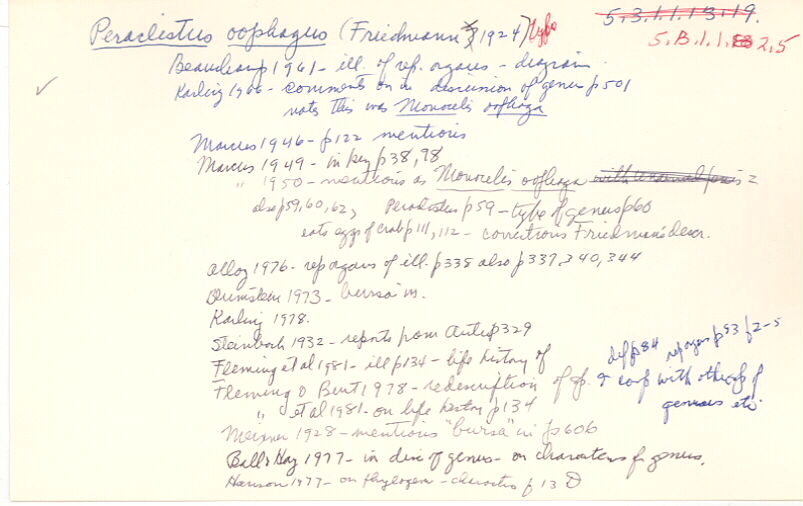 Peraclistus oophagus (Friedmann 1924) Typo
5.3.1.1.13.19.
5.B.1.1. 2.5
Beauchamp 1961 - ill. of rep. organs - diagram.
Karling 1966 - comments on in discussion of genera p501
notes this was Monocelis oofaga
Marcus 1946 - p122 mentions
Marcus 1949 - in key p38, 98
" 1950 - mentions as Monocelis oofhaga =
also p59, 60, 62, Peraclistus p59 - type of genus p60
eats eggs of crab p111, 112 - corrections Friedmann's descr.
1976 - rep organs of ill. p338 also p337, 340, 344
1973 - bursa in.
Karling 1978.
Steinbock 1932 - reports from p329
Fleming et al 1981 - ill p134 - life history of
Fleming & Burt 1978 - redescription of sp. & comp with other sp of
genera etc.
def p84 rep organs p83 f2-5
" et al 1981 - on life history p134
Meixner 1928 - mentions "bursa" in p606
Ball & Hay 1977 - in disc of genus - on characters for genus.
1977 - on phylogen - characters p13